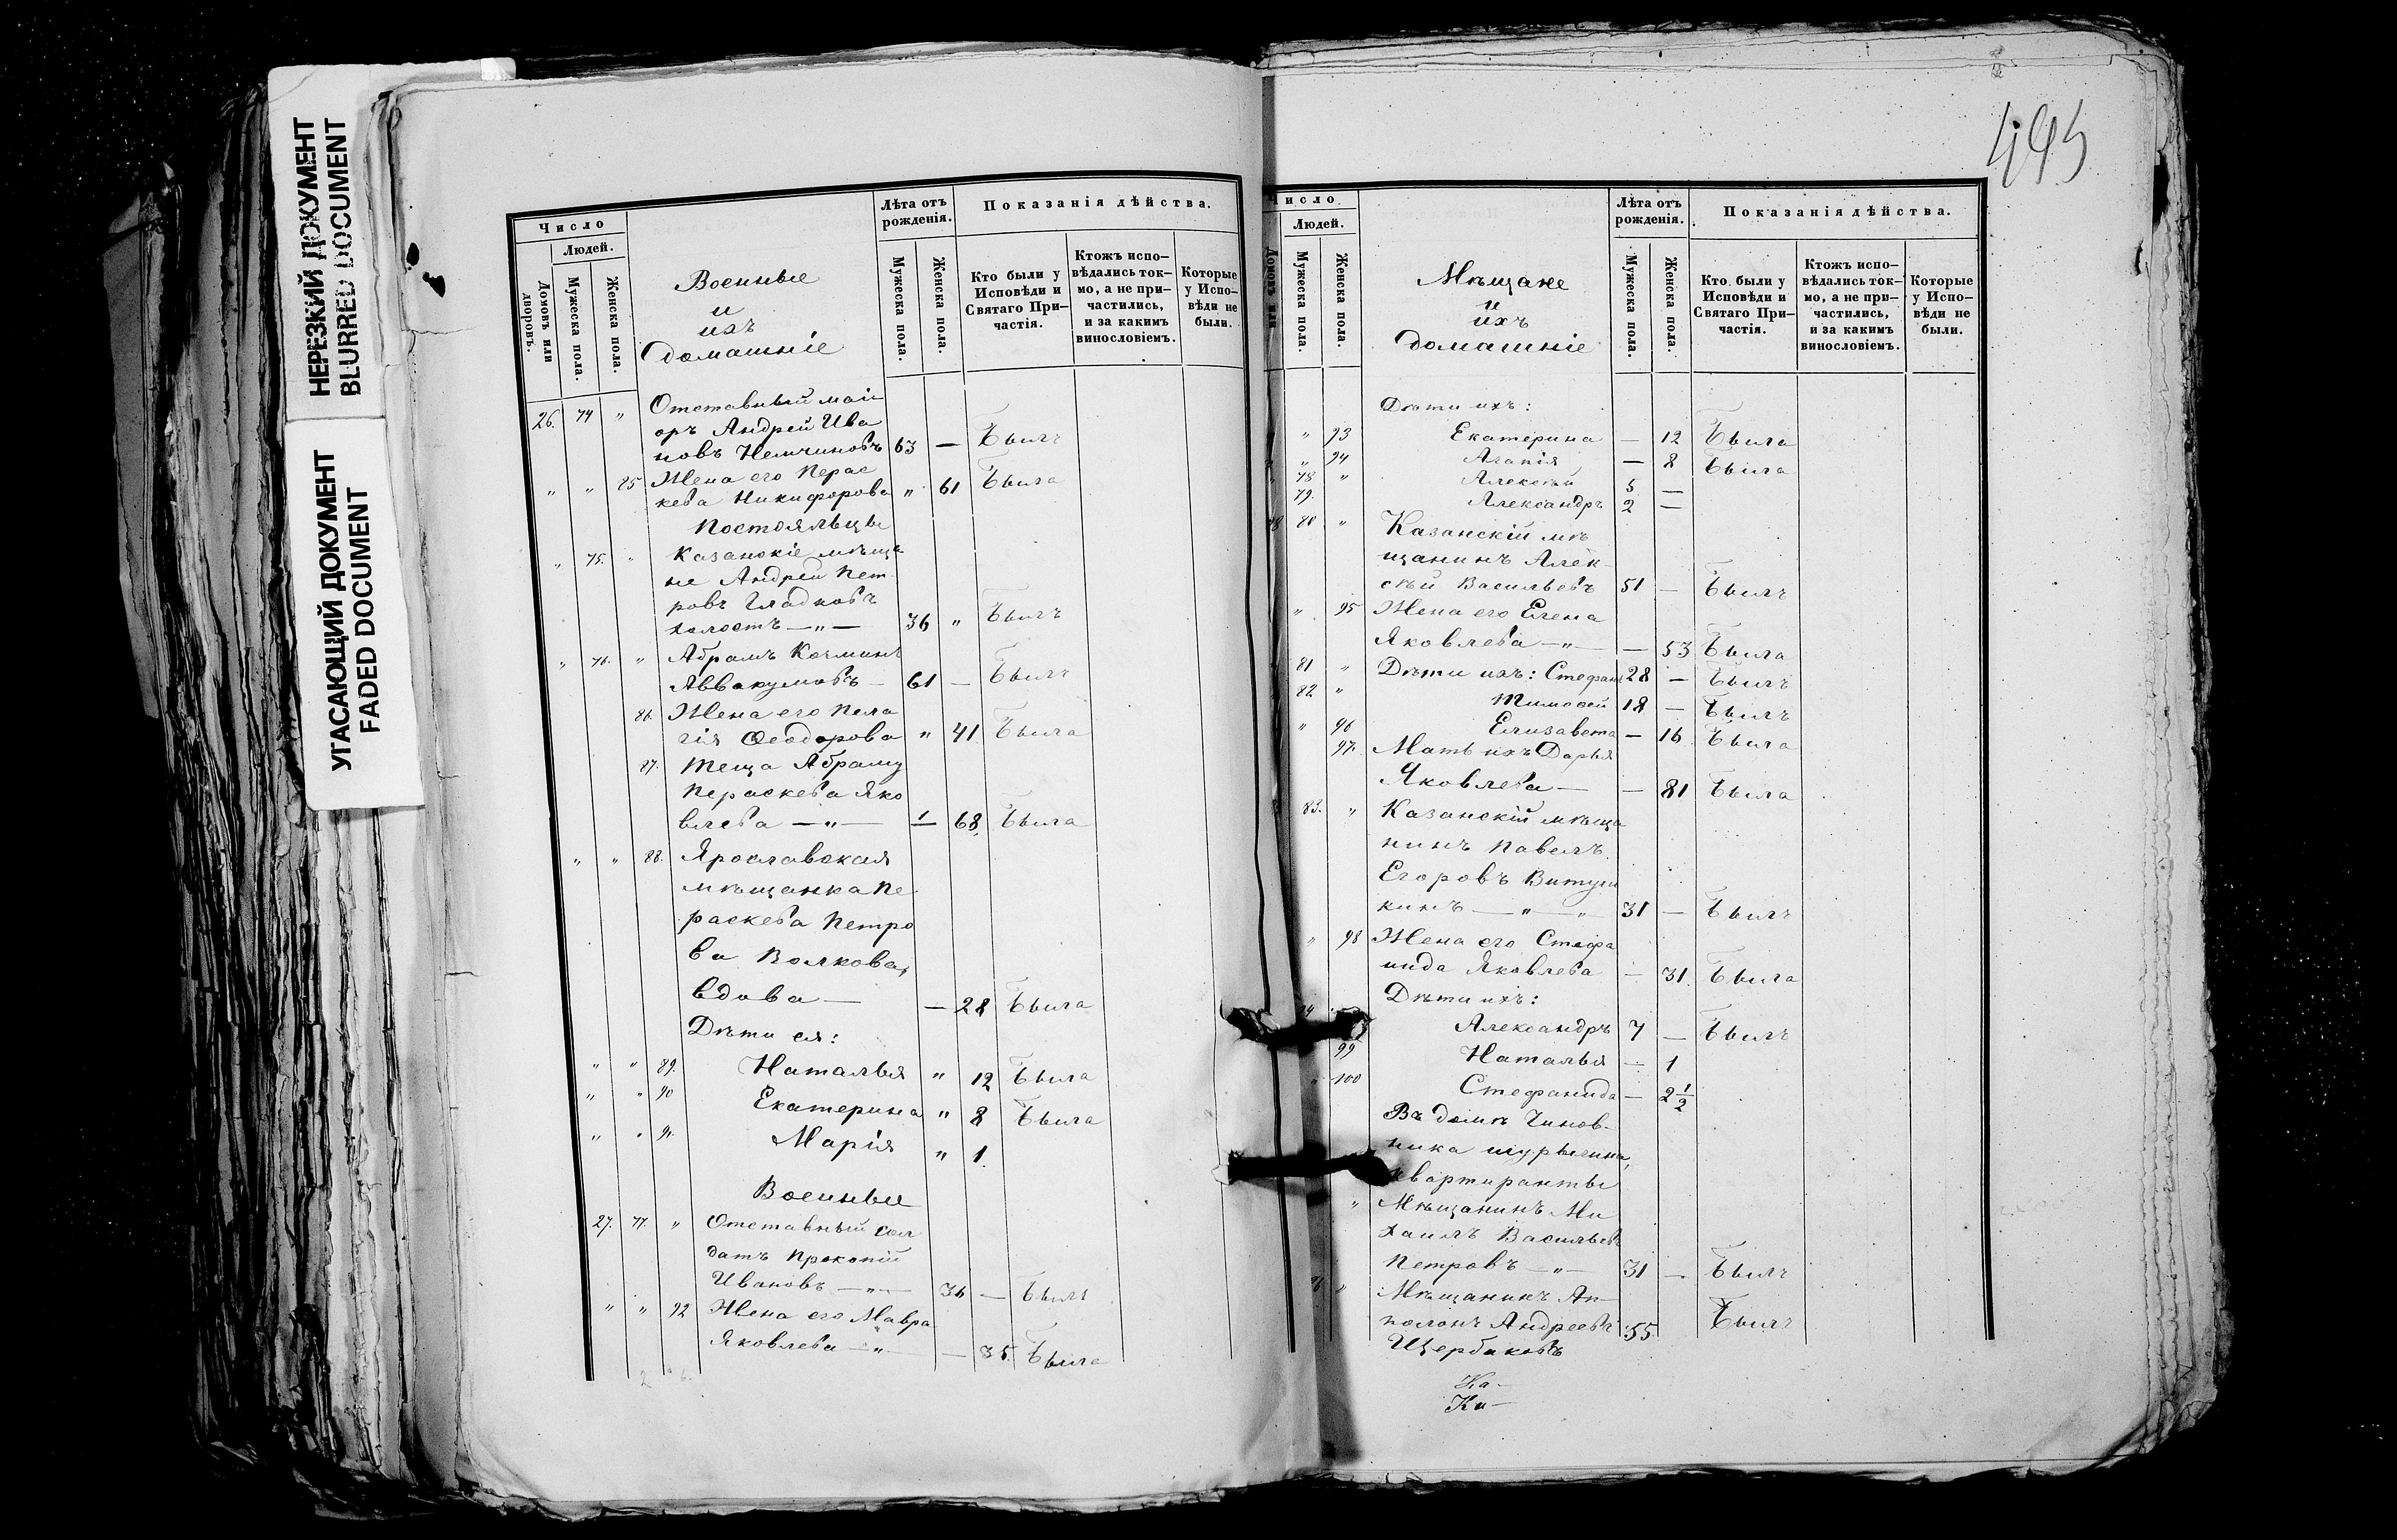 НЕРЕЗКИЙ ДОКУМЕНТ
BLURRED DOCUMENT
УГАСАЮЩИЙ ДОКУМЕНТ
FADED DOCUMENT
Число
Людей.
Домовъ или дворовъ.
Мужеска пола.
Женска пола.
Военные
и
ихъ
домашніе
Лѣта отъ рожденія.
Мужеска пола.
Женска пола.
Показанія дѣйства.
Кто были у Исповѣди и Святаго Причастія.
Ктожъ исповѣдались токмо, а не причастились, и за какимъ винословіемъ.
Которые у Исповѣди не были.
26. 74 " Отставный маі
оръ Андрей Ива
новъ Немчиновъ 63 — Былъ
" " 85 Жена его Перас
кева Никифорова " 61 Была
Постояльцы
" 75. " Казанскіе мѣща
не Андрей Пет
ровъ Гладковъ
холостъ —"— 36 " Былъ
" 76. " Абрамъ Козминъ
Аввакумовъ — 61 — Былъ
86. Жена его Пела
гія Ѳеодорова " 41 Была
87. Теща Абраму
Пераскева Яко
влева —"— — 68. Была
" " 88. Ярославская
мѣщанка Пе
раскева Петро
ва Волкова,
вдова — — 28 Была
Дѣти ея:
" " 89. Наталья " 12 Была
" " 90 Екатерина " 8 Была
" " 91. Марія " 1.
Военные
27. 77. " Отставный сол
датъ Прокопій
Ивановъ —"— 36 — Былъ
" " 92 Жена его Мавра
Яковлева —"— — 35 Была
495
Число
Людей.
Домовъ или
Мужеска пола.
Женска пола.
Мѣщане
и
ихъ
домашніе
Лѣта отъ рожденія.
Мужеска пола.
Женска пола.
Показанія дѣйства.
Кто были у Исповѣди и Святаго Причастія.
Ктожъ исповѣдались токмо, а не причастились, и за какимъ винословіемъ.
Которые у Исповѣди не были.
Дѣти ихъ:
" 93 Екатерина — 12 Была
" 94 Агапія — 8 Была
78 " Алексѣй 5 —
79. Александръ 2 —
80 " Казанскій мѣ
щанинъ Алек
сѣй Васильевъ 51 — Былъ
" 95 Жена его Елена
Яковлева —"— — 53 Была
81 " Дѣти ихъ: Стефанъ 28 — Былъ
82 " Тимоѳей 18 — Былъ
" 96 Елизавета — 16 Была
97. Мать ихъ Дарья
Яковлева — — 81 Была
83. " Казанскій мѣща
нинъ Павелъ
Егоровъ Витуш
кинъ —"—"— 31 — Былъ
" 98 Жена его Стефа
нида Яковлева — 31. Была
Дѣти ихъ:
Александръ 7 — Былъ
99 Наталья — 1
" 100 Стефанида — 2 1/2
Въ домѣ Чинов-
ника Шурыгина,
квартиранты
" Мѣщанинъ Ми
хаилъ Васильевъ
Петровъ —"— 31 — Былъ
" Мѣщанинъ Ап-
полонъ Андреевъ 55. Былъ
Щербаковъ
Ка-
Ка-